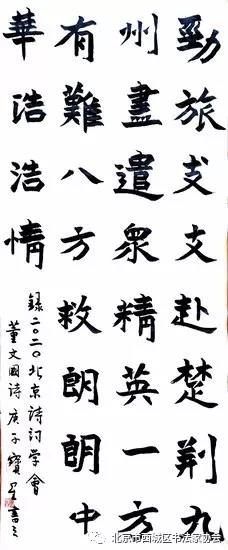 勁旅支支赴楚荆九
州盡遣眾精英一方
有難八方救朗朗中
華浩浩情
錄二〇二〇北京詩詞学會
董文國诗庚子寶書
北京市西城区书法家协会